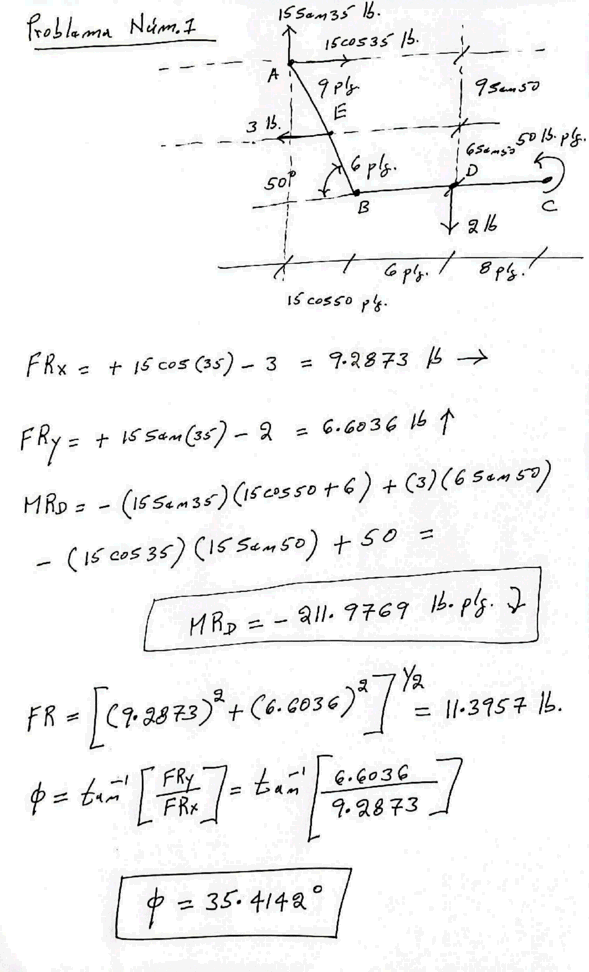 Problema Núm.1
15Sen35 lb.
15cos35 lb.
A
9 plg.
9Sen50
E
3 lb.
6Sen50
50 lb. plg.
50°
6 plg.
D
B
C
2 lb
6 plg.
8 plg.
15 cos50 plg.
FRx = + 15 cos (35) - 3 = 9.2873 lb →
FRy = + 15 Sen (35) - 2 = 6.6036 lb ↑
MRD = - (15 Sen35) (15 cos50 + 6) + (3) (6 Sen50)
- (15 cos35) (15 Sen50) + 50 =
MRD = - 211.9769 lb. plg. ↲
FR = [(9.2873)² + (6.6036)²]^1/2 = 11.3957 lb.
ϕ = tan⁻¹ [FRy / FRx] = tan⁻¹ [6.6036 / 9.2873]
ϕ = 35.4142°